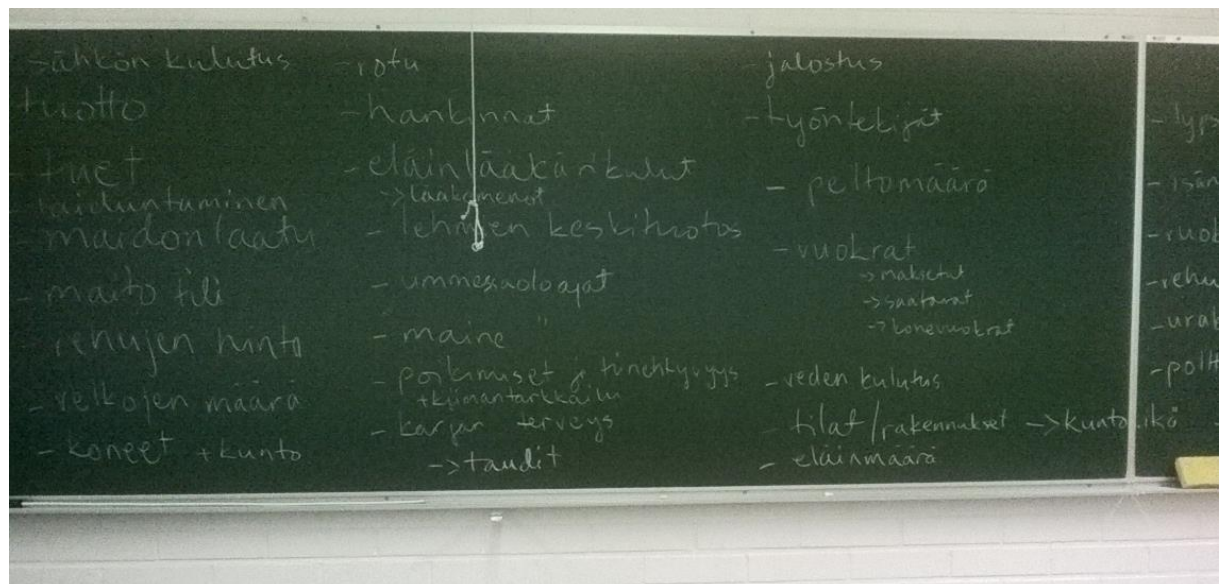 -sähkön kulutus
tuotto
- tuet
- laiduntaminen
- maidon laatu
- maito tili
- rehujen hinta
- velkojen määrä
- koneet + kunto
- rotu
- hankinnat
- eläinlääkärikulut
-> lääkemenot
- lehmien keskituotos
- ummessaoloajat
- maine
- poikimiset ja tiinehtyvyys
+ kiimantarkkailu
- karjan terveys
-> taudit
- jalostus
- työntekijät
- peltomäärä
- vuokrat
-> maksetut
-> saatavat
-> konevuokrat
- veden kulutus
- tilat/rakennukset -> kunto, ikä
- eläinmäärä
- lyps
- isän
- ruok
- rehu
- urak
- poltt